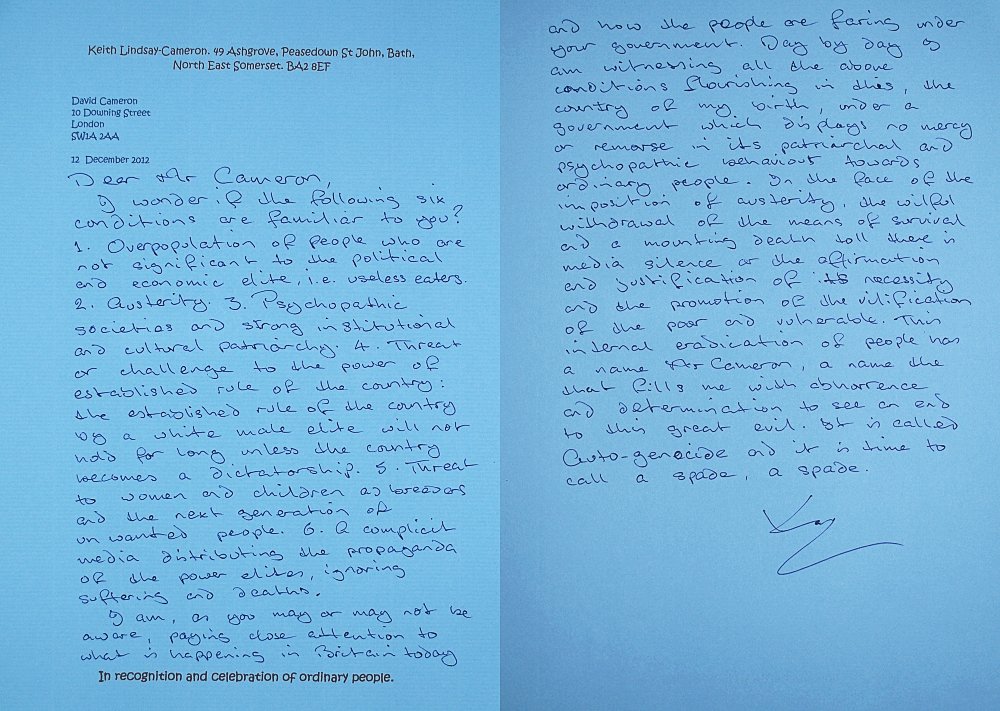 Keith Lindsay-Cameron. 49 Ashgrove, Peasedown St John, Bath,
North East Somerset. BA2 8EF
David Cameron
10 Downing Street
London
SW1A 2AA
12 December 2012
Dear Mr Cameron,
I wonder if the following six
conditions are familiar to you?
1. Overpopulation of people who are
not significant to the political
and economic elite, i.e. useless eaters.
2. Austerity. 3. Psychopathic
societies and strong institutional
and cultural patriarchy. 4. Threat
or challenge to the power of
established rule of the country:
the established rule of the country
by a white male elite will not
hold for long unless the country
becomes a dictatorship. 5. Threat
to women and children as breeders
and the next generation of
unwanted people. 6. A complicit
media distributing the propaganda
of the power elites, ignoring
suffering and deaths.
I am, as you may or may not be
aware, paying close attention to
what is happening in Britain today
In recognition and celebration of ordinary people.
and how the people are faring under
your government. Day by day I
am witnessing all the above
conditions flourishing in this, the
country of my birth, under a
government which displays no mercy
or remorse in its patriarchal and
psychopathic behaviour towards
ordinary people. In the face of the
imposition of austerity, the wilful
withdrawal of the means of survival
and a mounting death toll there is
media silence or the affirmation
and justification of its necessity
and the promotion of the vilification
of the poor and vulnerable. This
internal eradication of people has
a name Mr Cameron, a name the
that fills me with abhorrence
and determination to see an end
to this great evil. It is called
Auto-genocide and it is time to
call a spade, a spade.